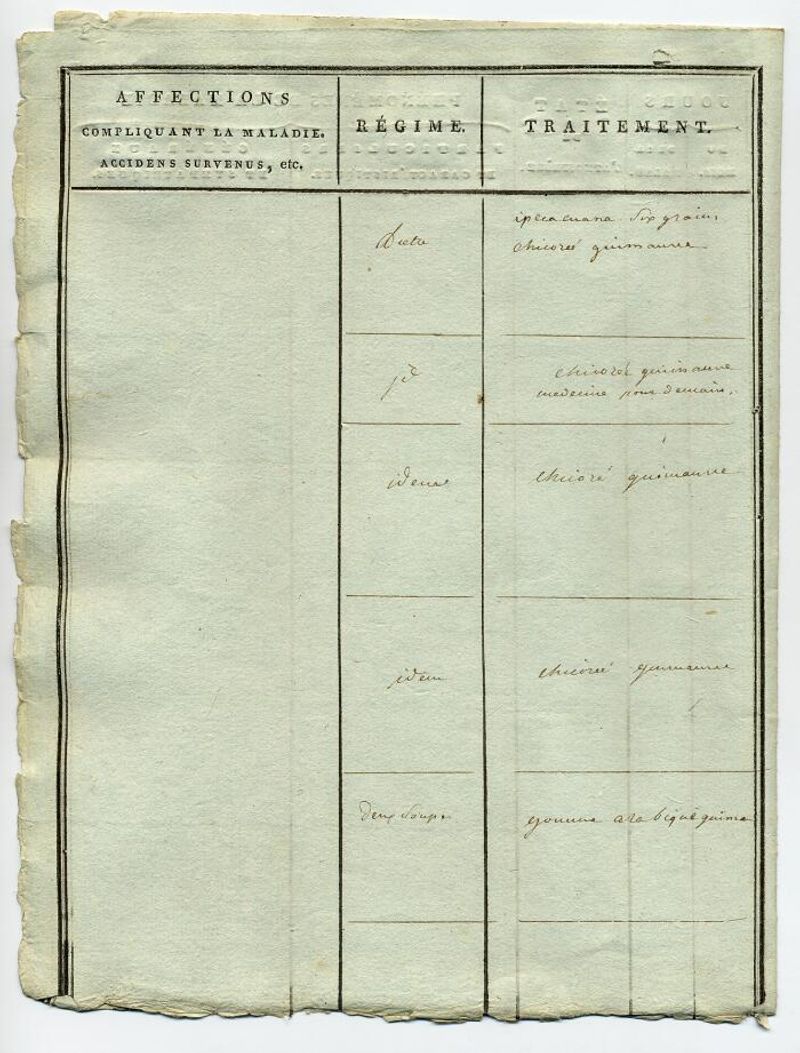 AFFECTIONS
COMPLIQUANT LA MALADIE.
ACCIDENS SURVENUS, etc.
RÉGIME.
TRAITEMENT.
Diete
ipecacuana six grains
chicoreé guimauve
id
chicoreé guimauve
medecine pour demain.
idem
chicoré guimauve
idem
chicoreé guimauve
deux soupes
gomme arabique guima